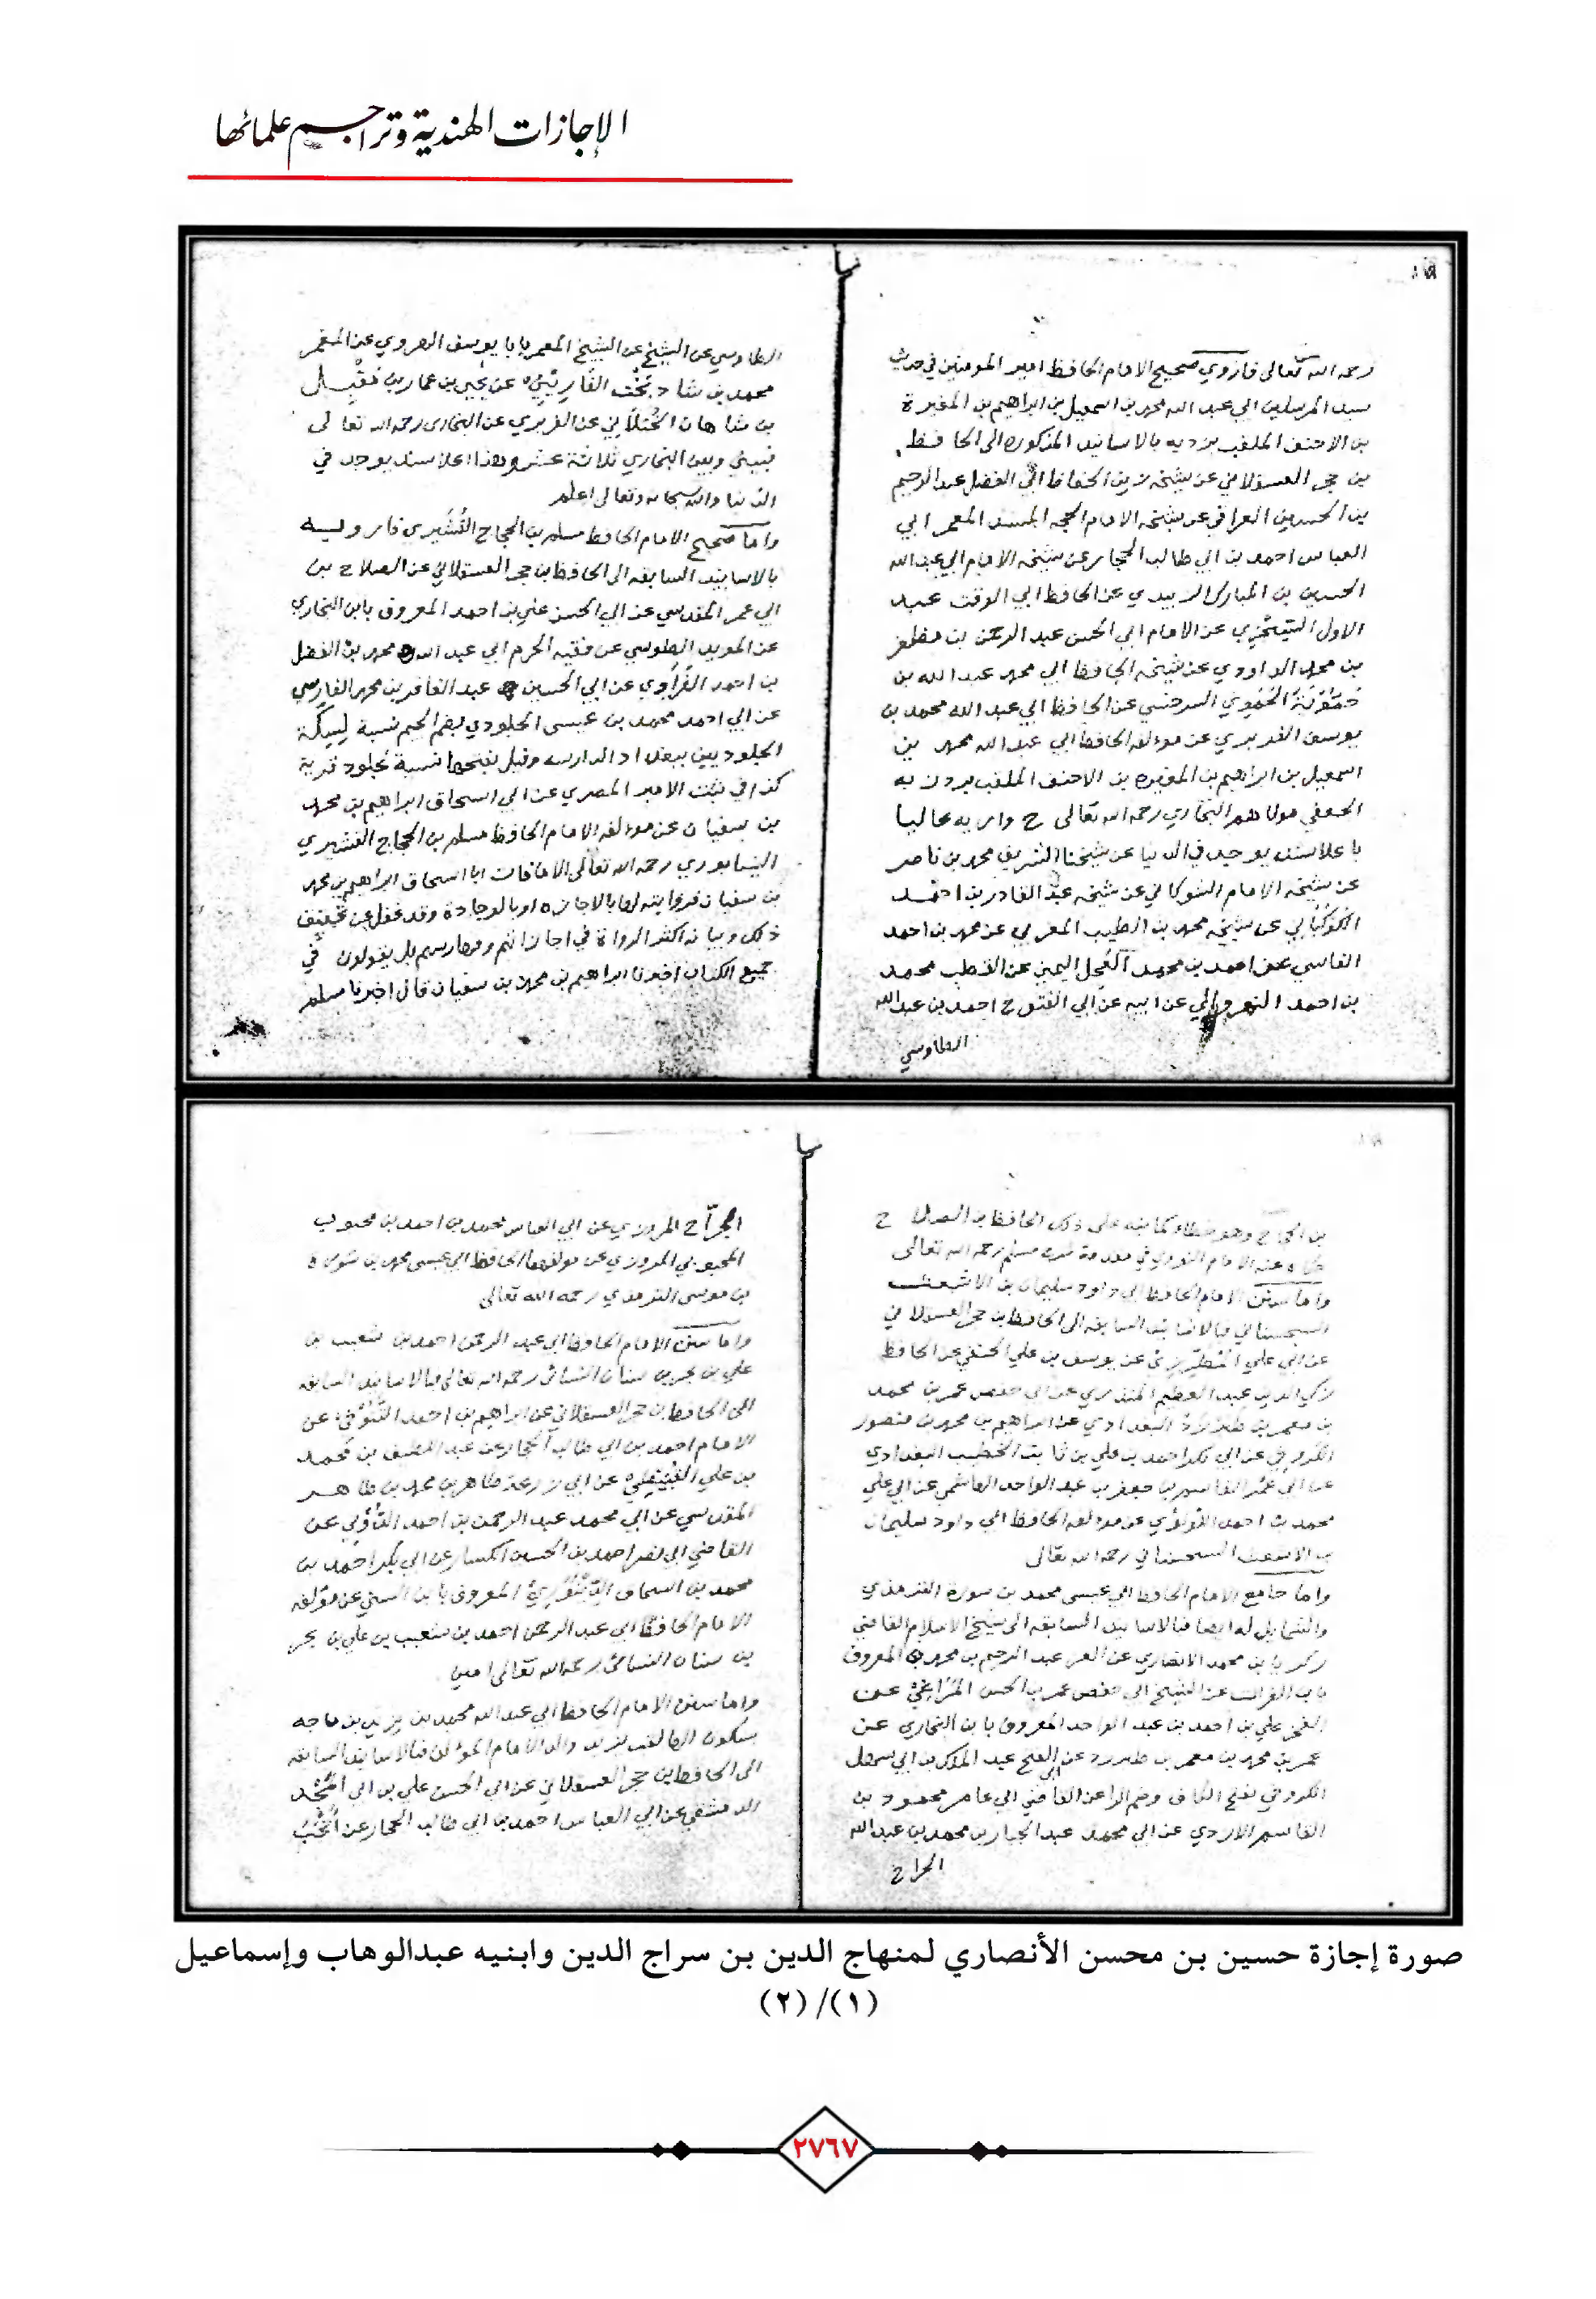 الإجازات الهندية وتراجم علمائها
رحمه الله تعالى فاروي صحيح الامام الحافظ امير المومنين في حديث
سيد المرسلين ابي عبد الله محمد بن اسمعيل بن ابراهيم بن المغيرة
بن الاحنف الملقب بردبه بالاسانيد المذكوره الى الحافظ
بن حجر العسقلاني عن شيخه زين الحفاظ ابي الفضل عبد الرحيم
بن الحسين العراقي عن شيخه الامام الحجه المسند المعمر ابي
العباس احمد بن ابي طالب الحجار عن شيخه الامام ابي عبد الله
الحسين بن المبارك الزبيدي عن الحافظ ابي الوقت عبد
الاول السجزي عن الامام ابي الحسن عبد الرحمن بن مظفر
بن محمد الداودي عن شيخه الحافظ ابي محمد عبد الله بن
حمويه الحموي السرخسي عن الحافظ ابي عبد الله محمد بن
يوسف الفربري عن مولفه الحافظ ابي عبد الله محمد بن
اسمعيل بن ابراهيم بن المغيره بن الاحنف الملقب بردزبه
الجعفي مولاهم البخاري رحمه الله تعالى ح وارويه عاليا
باعلا سند يوجد في الدنيا عن شيخنا الشريف محمد بن ناصر
عن شيخه الامام الشوكاني عن شيخه عبد القادر بن احمد
الكوكباني عن شيخه محمد بن الطيب المغربي عن محمد بن احمد
الفاسي عن احمد بن محمد العجل اليمني عن القطب محمد
بن احمد النهروالي عن ابيه عن ابي الفتوح احمد بن عبد الله
الطاوسي
الطاوسي عن الشيخ عن الشيخ المعمر بابا يوسف الهروي عن المعمر
محمد بن شاد بخت الفارسي عن يحيى بن عمار بن مقبل
بن شاهان الختلاني عن الفربري عن البخاري رحمه الله تعالى
فبيني وبين البخاري ثلاثة عشر وهذا اعلا سند يوجد في
الدنيا والله سبحانه وتعالى اعلم
واما صحيح الامام الحافظ مسلم بن الحجاج القشيري فارويه
بالاسانيد السابقه الى الحافظ بن حجر العسقلاني عن الصلاح بن
ابي عمر المقدسي عن ابي الحسن علي بن احمد المعروف بابن البخاري
عن المويد الطوسي عن فقيه الحرم ابي عبد الله محمد بن الفضل
بن احمد الفراوي عن ابي الحسين عبد الغافر بن محمد الفارسي
عن ابي احمد محمد بن عيسى الجلودي بضم الجيم نسبة لسكة
الجلوديين ببغداد الدارسه وقيل بفتحها نسبة لجلود قرية
كذا في ثبت الامير المصري عن ابي اسحاق ابراهيم بن محمد
بن سفيان عن مولفه الامام الحافظ مسلم بن الحجاج القشيري
النيسابوري رحمه الله تعالى الا ما فات ابا اسحاق ابراهيم بن محمد
بن سفيان فروايته لها بالاجازه او بالوجادة وقد غفل عن تحقيق
ذلك وبيانه اكثر الرواة في اجازاتهم وفهارسهم بل يقولون في
جميع الكتاب اخبرنا ابراهيم بن محمد بن سفيان قال اخبرنا مسلم
بن الحجاج وهو خطاء كما نبه على ذلك الحافظ بن الصلاح
عنه الامام النووي في مقدمة شرح مسلم رحمه الله تعالى
واما سنن الامام الحافظ ابي داود سليمان بن الاشعث
السجستاني فبالاسانيد السابقه الى الحافظ بن حجر العسقلاني
عن ابي علي المطرزي عن يوسف بن علي الحنفي عن الحافظ
زكي الدين عبد العظيم المنذري عن ابي حفص عمر بن محمد
بن معمر بن طبرزد البغدادي عن ابراهيم بن محمد بن منصور
الكروخي عن ابي بكر احمد بن علي بن ثابت الخطيب البغدادي
عن ابي عمر القاسم بن جعفر بن عبد الواحد الهاشمي عن ابي علي
محمد بن احمد اللولوي عن مولفه الحافظ ابي داود سليمان
بن الاشعث السجستاني رحمه الله تعالى
واما جامع الامام الحافظ ابي عيسى محمد بن سورة الترمذي
والشمايل له ايضا فبالاسانيد السابقه الى شيخ الاسلام القاضي
زكريا بن محمد الانصاري عن العز عبد الرحيم بن محمد المعروف
بابن الفرات عن الشيخ ابي حفص عمر بن الحسن المراغي عن
الفخر علي بن احمد بن عبد الواحد المعروف بابن البخاري عن
عمر بن محمد بن معمر بن طبرزد عن ابي الفتح عبد الملك بن ابي سهل
الكروخي بفتح الكاف وضم الرا عن القاضي ابي عامر محمود بن
القاسم الازدي عن ابي محمد عبد الجبار بن محمد بن عبد الله
الجراح
الجراح المروزي عن ابي العباس محمد بن احمد بن محبوب
المحبوبي المروزي عن مولفهما الحافظ ابي عيسى محمد بن سورة
بن موسى الترمذي رحمه الله تعالى
واما سنن الامام الحافظ ابي عبد الرحمن احمد بن شعيب بن
علي بن بحر بن سنان النسائي رحمه الله تعالى فبالاسانيد السابقه
الى الحافظ بن حجر العسقلاني عن ابراهيم بن احمد التنوخي عن
الامام احمد بن ابي طالب الحجار عن عبد اللطيف بن محمد
بن علي القبيطي عن ابي زرعة طاهر بن محمد بن طاهر
المقدسي عن ابي محمد عبد الرحمن بن احمد الدوني عن
القاضي ابي نصر احمد بن الحسين الكسار عن ابي بكر احمد بن
محمد بن اسحاق الدينوري المعروف بابن السني عن مولفه
الامام الحافظ ابي عبد الرحمن احمد بن شعيب بن علي بن بحر
بن سنان النسائي رحمه الله تعالى امين
واما سنن الامام الحافظ ابي عبد الله محمد بن يزيد بن ماجه
بسكون الها لقب يزيد والد الامام فبالاسانيد السابقه
الى الحافظ بن حجر العسقلاني عن ابي الحسن علي بن ابي المجد
الدمشقي عن ابي العباس احمد بن ابي طالب الحجار عن انجب
صورة إجازة حسين بن محسن الأنصاري لمنهاج الدين بن سراج الدين وابنيه عبدالوهاب وإسماعيل
(١)/(٢)
٢٧٦٧